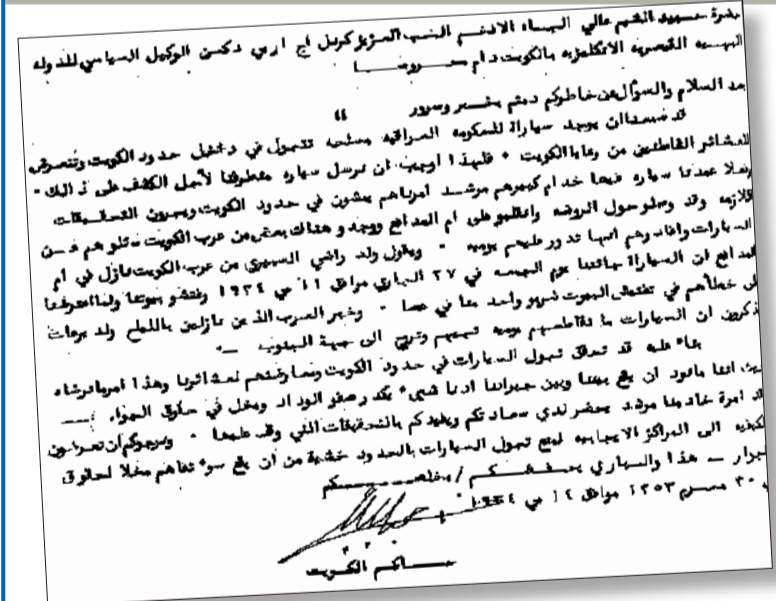 حضرة حميد الشيم عالي الجاه الافخم المحب العزيز كرنل اج ار بي دكسن الوكيل السياسي للدوله
البهيه القيصريه الانكليزيه بالكويت دام محروسا
بعد السلام والسؤال عن خاطركم دمتم بخير وسرور
قد سمعنا ان يوجد سيارات للحكومه العراقيه مسلحه تتجول في داخل حدود الكويت وتتعرض
للعشائر القاطنين من رعايا الكويت • فلهذا اوجب ان نرسل سياره بطرفنا لأجل الكشف على ذالك •
وفعلا عمدنا سياره فيها خدام كبيرهم مرشد امرناهم يمشون في حدود الكويت ويجرون التحقيقات
اللازمه وقد وصلو حول الروضه واقبلو على ام المدافع ووجدو هناك بعض من عرب الكويت سئلوهم عن
السيارات وافادوهم انها تدور عليهم يوميه • ويقول ولد راضي من عرب الكويت نازل في ام
المدافع ان السيارات جائتنا يوم الجمعه في ٢٧ الجاري موافق ١١ مي ١٩٣٤ وفتشو بيوتنا ولما اعترضنا
على خطأهم في تفتيش البيوت ضربو واحد منا في عصا • وخبر العرب الذين نازلين باللياح ولد برجات
يذكرون ان السيارات ما تقاطعهم يوميه تجيهم وتروح الى جهة الجنوب —
بناء عليه قد تحقق تجول السيارات في حدود الكويت ومعارضتهم لعشائرنا وهذا امر ما نرضاه
حيث اننا مانود ان يقع بيننا وبين جيراننا ادنا شيء يكدر صفو الوداد ويخل في حقوق الجوار —
وقد امرة خادمنا مرشد يحضر لدي سعادتكم ويفيدكم بالتحقيقات التي وقف عليها • ونرجوكم ان تعرضون
الكيفيه الى المراكز الايجابيه لمنع تجول السيارات بالحدود خشية من ان يقع سوء تفاهم مخلا لحقوق
الجوار — هذا والباري يحفظكم / مخلصكم
٣٠ محرم ١٣٥٣ موافق ١٤ مي ١٩٣٤
حاكم الكويت